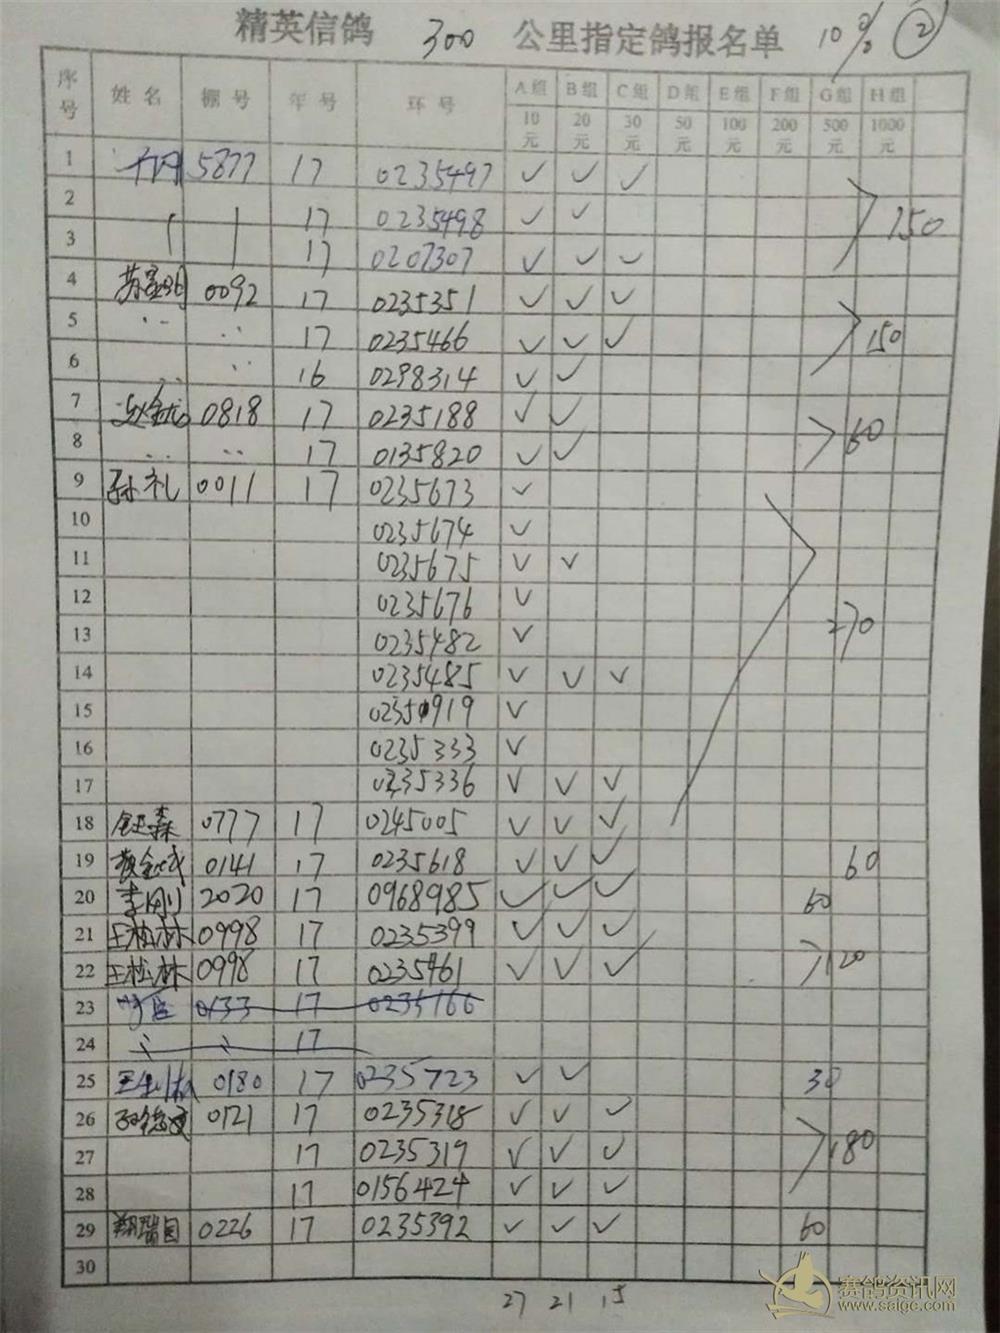 精英信鸽 300 公里指定鸽报名单 10% ②
序号 姓名 棚号 年号 环号 A组 B组 C组 D组 E组 F组 G组 H组
10元 20元 30元 50元 100元 200元 500元 1000元
1 5877 17 0235497 ✓ ✓ ✓
2 17 0235498 ✓ ✓ 150
3 17 0207307 ✓ ✓ ✓
4 0092 17 0235351 ✓ ✓ ✓
5 17 0235466 ✓ ✓ ✓ 150
6 16 0298314 ✓ ✓
7 0818 17 0235188 ✓ ✓ 60
8 17 0135820 ✓ ✓
9 孙礼 0011 17 0235673 ✓
10 0235674 ✓
11 0235675 ✓ ✓
12 0235676 ✓
13 0235482 ✓ 270
14 0235485 ✓ ✓ ✓
15 ✓
16 0235333 ✓
17 0235336 ✓ ✓ ✓
18 0777 17 0245005 ✓ ✓ ✓
19 0141 17 0235618 ✓ ✓ ✓ 60
20 李刚 2020 17 0968985 ✓ ✓ ✓ 60
21 王松林 0998 17 0235399 ✓ ✓ ✓
22 王松林 0998 17 0235461 ✓ ✓ ✓ 120
23 0133 17 0235166
24 17
25 0180 17 0235723 ✓ ✓ 30
26 0121 17 0235318 ✓ ✓ ✓
27 17 0235319 ✓ ✓ ✓ 180
28 17 0156424 ✓ ✓ ✓
29 0226 17 0235392 ✓ ✓ ✓ 60
30
27 21 15
赛鸽资讯网
www.saigc.com